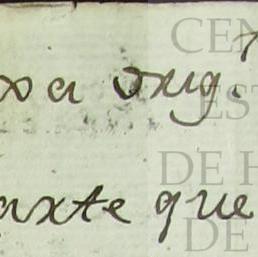 xa orig.l
CEN
EST
axte que
DE H
DE